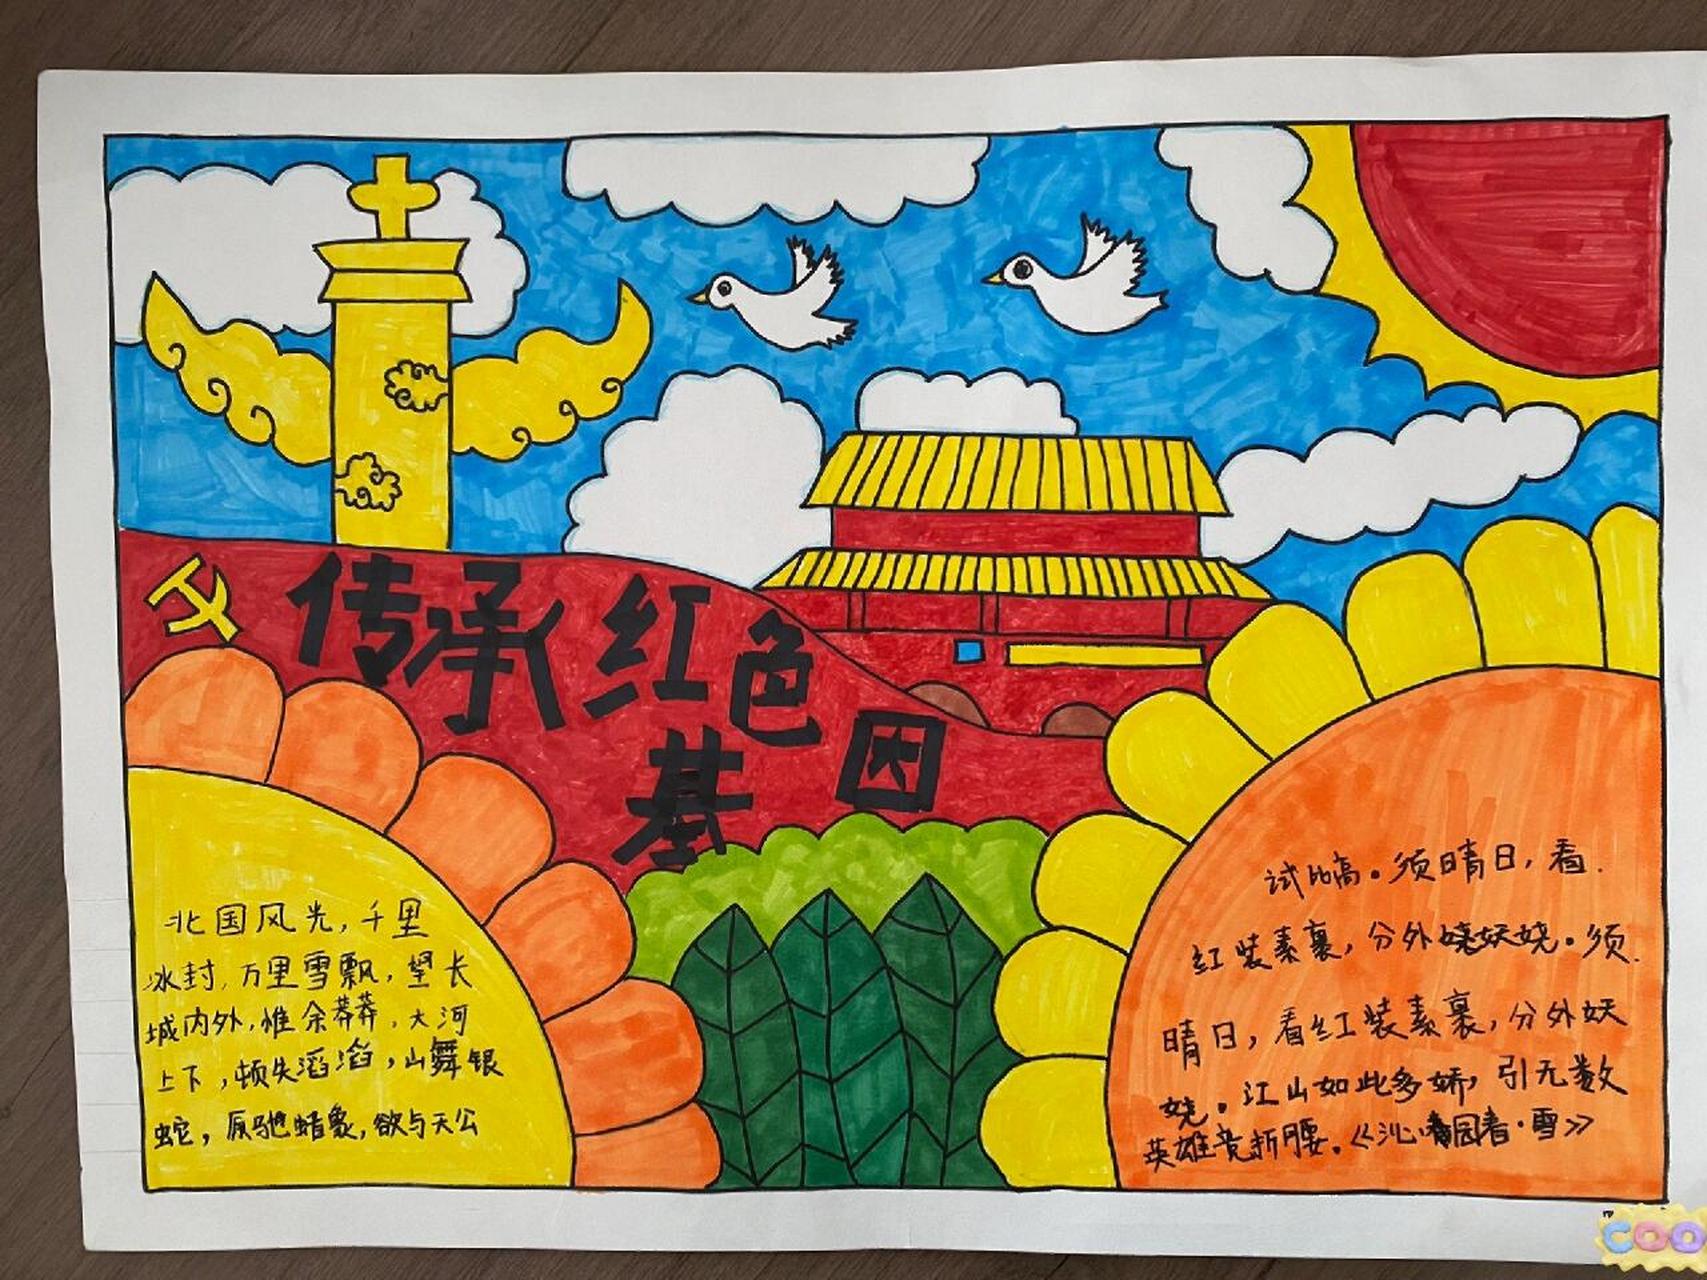 传承红色
基因
北国风光，千里
冰封，万里雪飘，望长
城内外，惟余莽莽，大河
上下，顿失滔滔，山舞银
蛇，原驰蜡象，欲与天公
试比高。须晴日，看.
红装素裹，分外娆妖娆。须.
晴日，看红装素裹，分外妖
娆。江山如此多娇，引无数
英雄竞折腰。《沁园春·雪》
COO